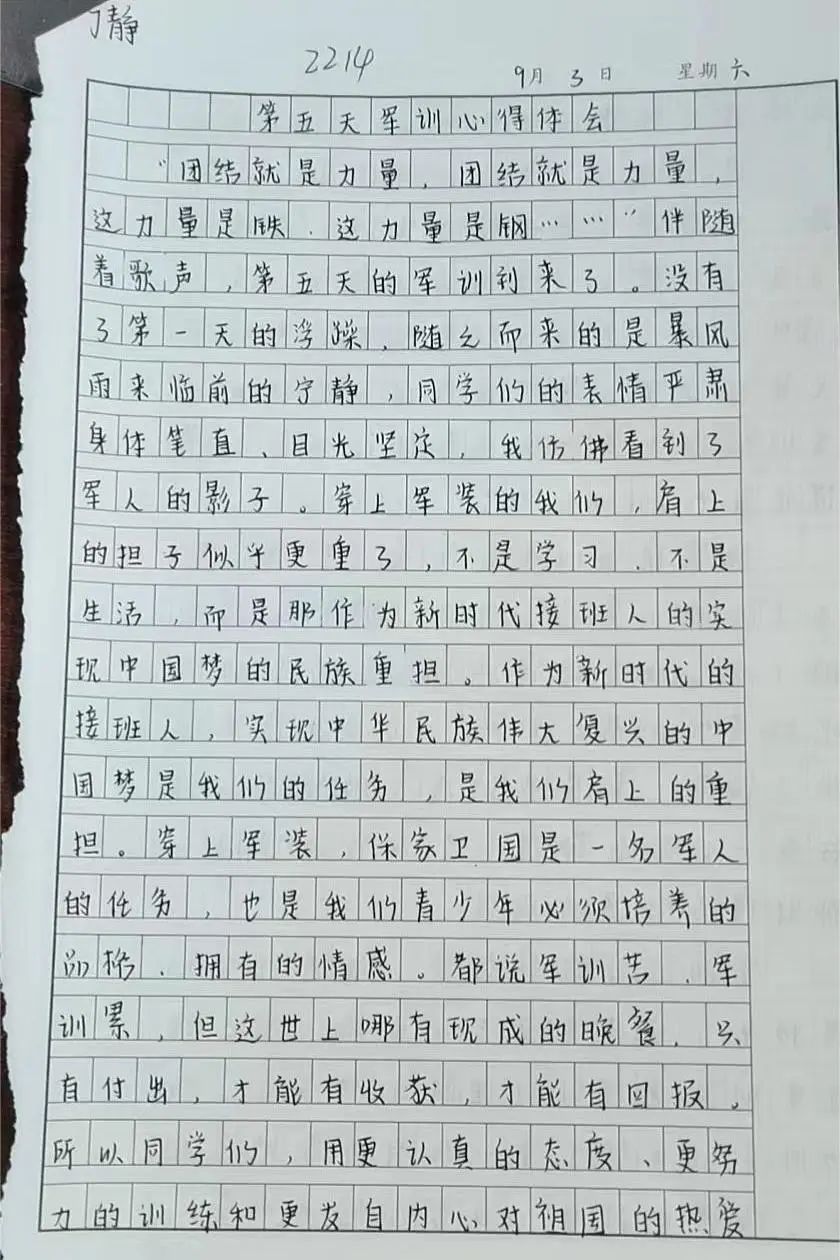 丁静
2214
9月 3日 星期六
第五天军训心得体会
“团结就是力量，团结就是力量，
这力量是铁、这力量是钢……”伴随
着歌声，第五天的军训到来了。没有
了第一天的浮躁，随之而来的是暴风
雨来临前的宁静，同学们的表情严肃
身体笔直、目光坚定，我仿佛看到了
军人的影子。穿上军装的我们，肩上
的担子似乎更重了，不是学习、不是
生活，而是那作为新时代接班人的实
现中国梦的民族重担。作为新时代的
接班人，实现中华民族伟大复兴的中
国梦是我们的任务，是我们肩上的重
担。穿上军装，保家卫国是一名军人
的任务，也是我们青少年必须培养的
品格、拥有的情感。都说军训苦、军
训累，但这世上哪有现成的晚餐，只
有付出，才能有收获，才能有回报。
所以同学们，用更认真的态度、更努
力的训练和更发自内心对祖国的热爱